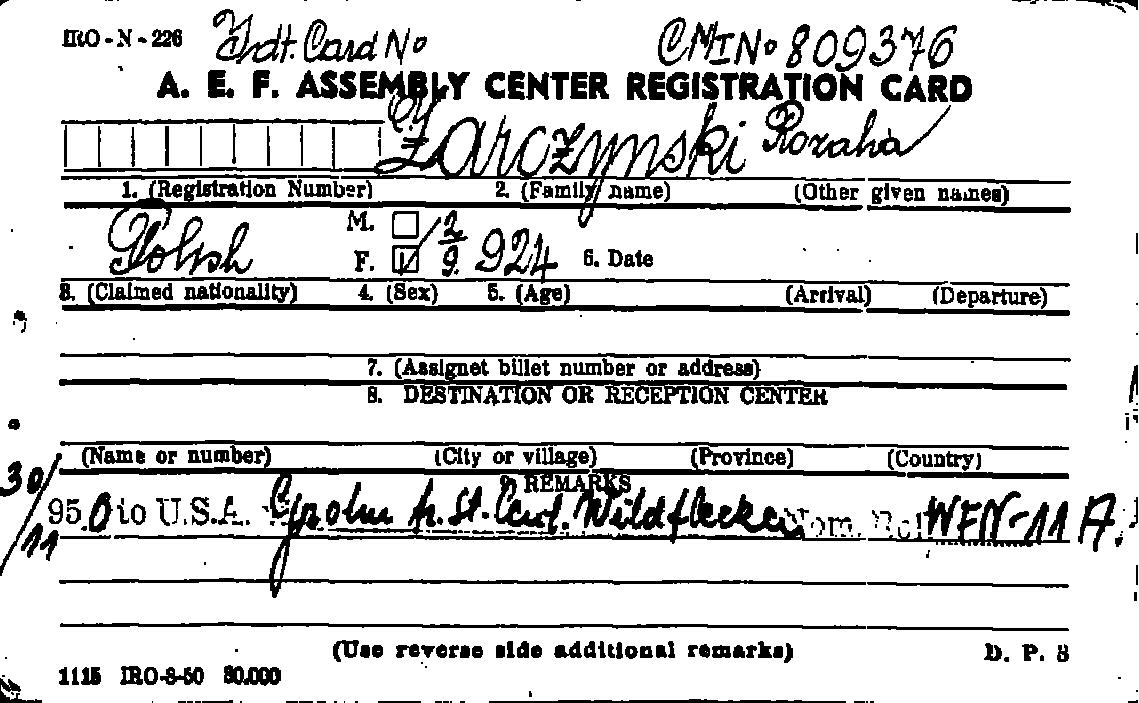 IRO - N - 226 Idt. Card No CM1No 809376
A. E. F. ASSEMBLY CENTER REGISTRATION CARD
Zarczynski
1. (Registration Number) 2. (Family name) (Other given names)
Polish M.
F. 2/9. 924 6. Date
3. (Claimed nationality) 4. (Sex) 5. (Age) (Arrival) (Departure)
7. (Assignet billet number or address)
8. DESTINATION OR RECEPTION CENTER
(Name or number) (City or village) (Province) (Country)
9. REMARKS
30/11 950 to U.S.A. Wildflecken Nom. Rol WFN-11 A.
(Use reverse side additional remarks) D. P. 3
1115 IRO-8-50 80.000